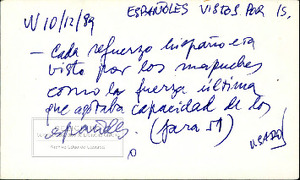 N 10/12/89 ESPAÑOLES VISTOS POR IS.
– Cada refuerzo hispano era
visto por los mapuches
como la fuerza última
que agotaba capacidad de los
españoles. (Jara 51)
USADO